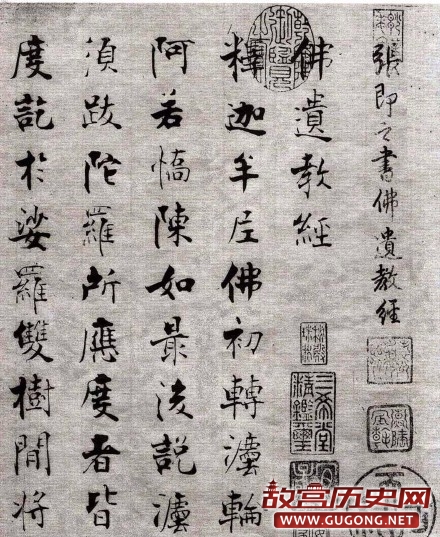 張即之書佛遺教經
佛遺教經
釋迦牟尼佛初轉瀍輪
阿若憍陳如最後說瀍
須跋陀羅所應度者皆
度訖於娑羅雙樹間將
三希堂
精鑑璽
故宫历史网
WWW.GUGONG.NET